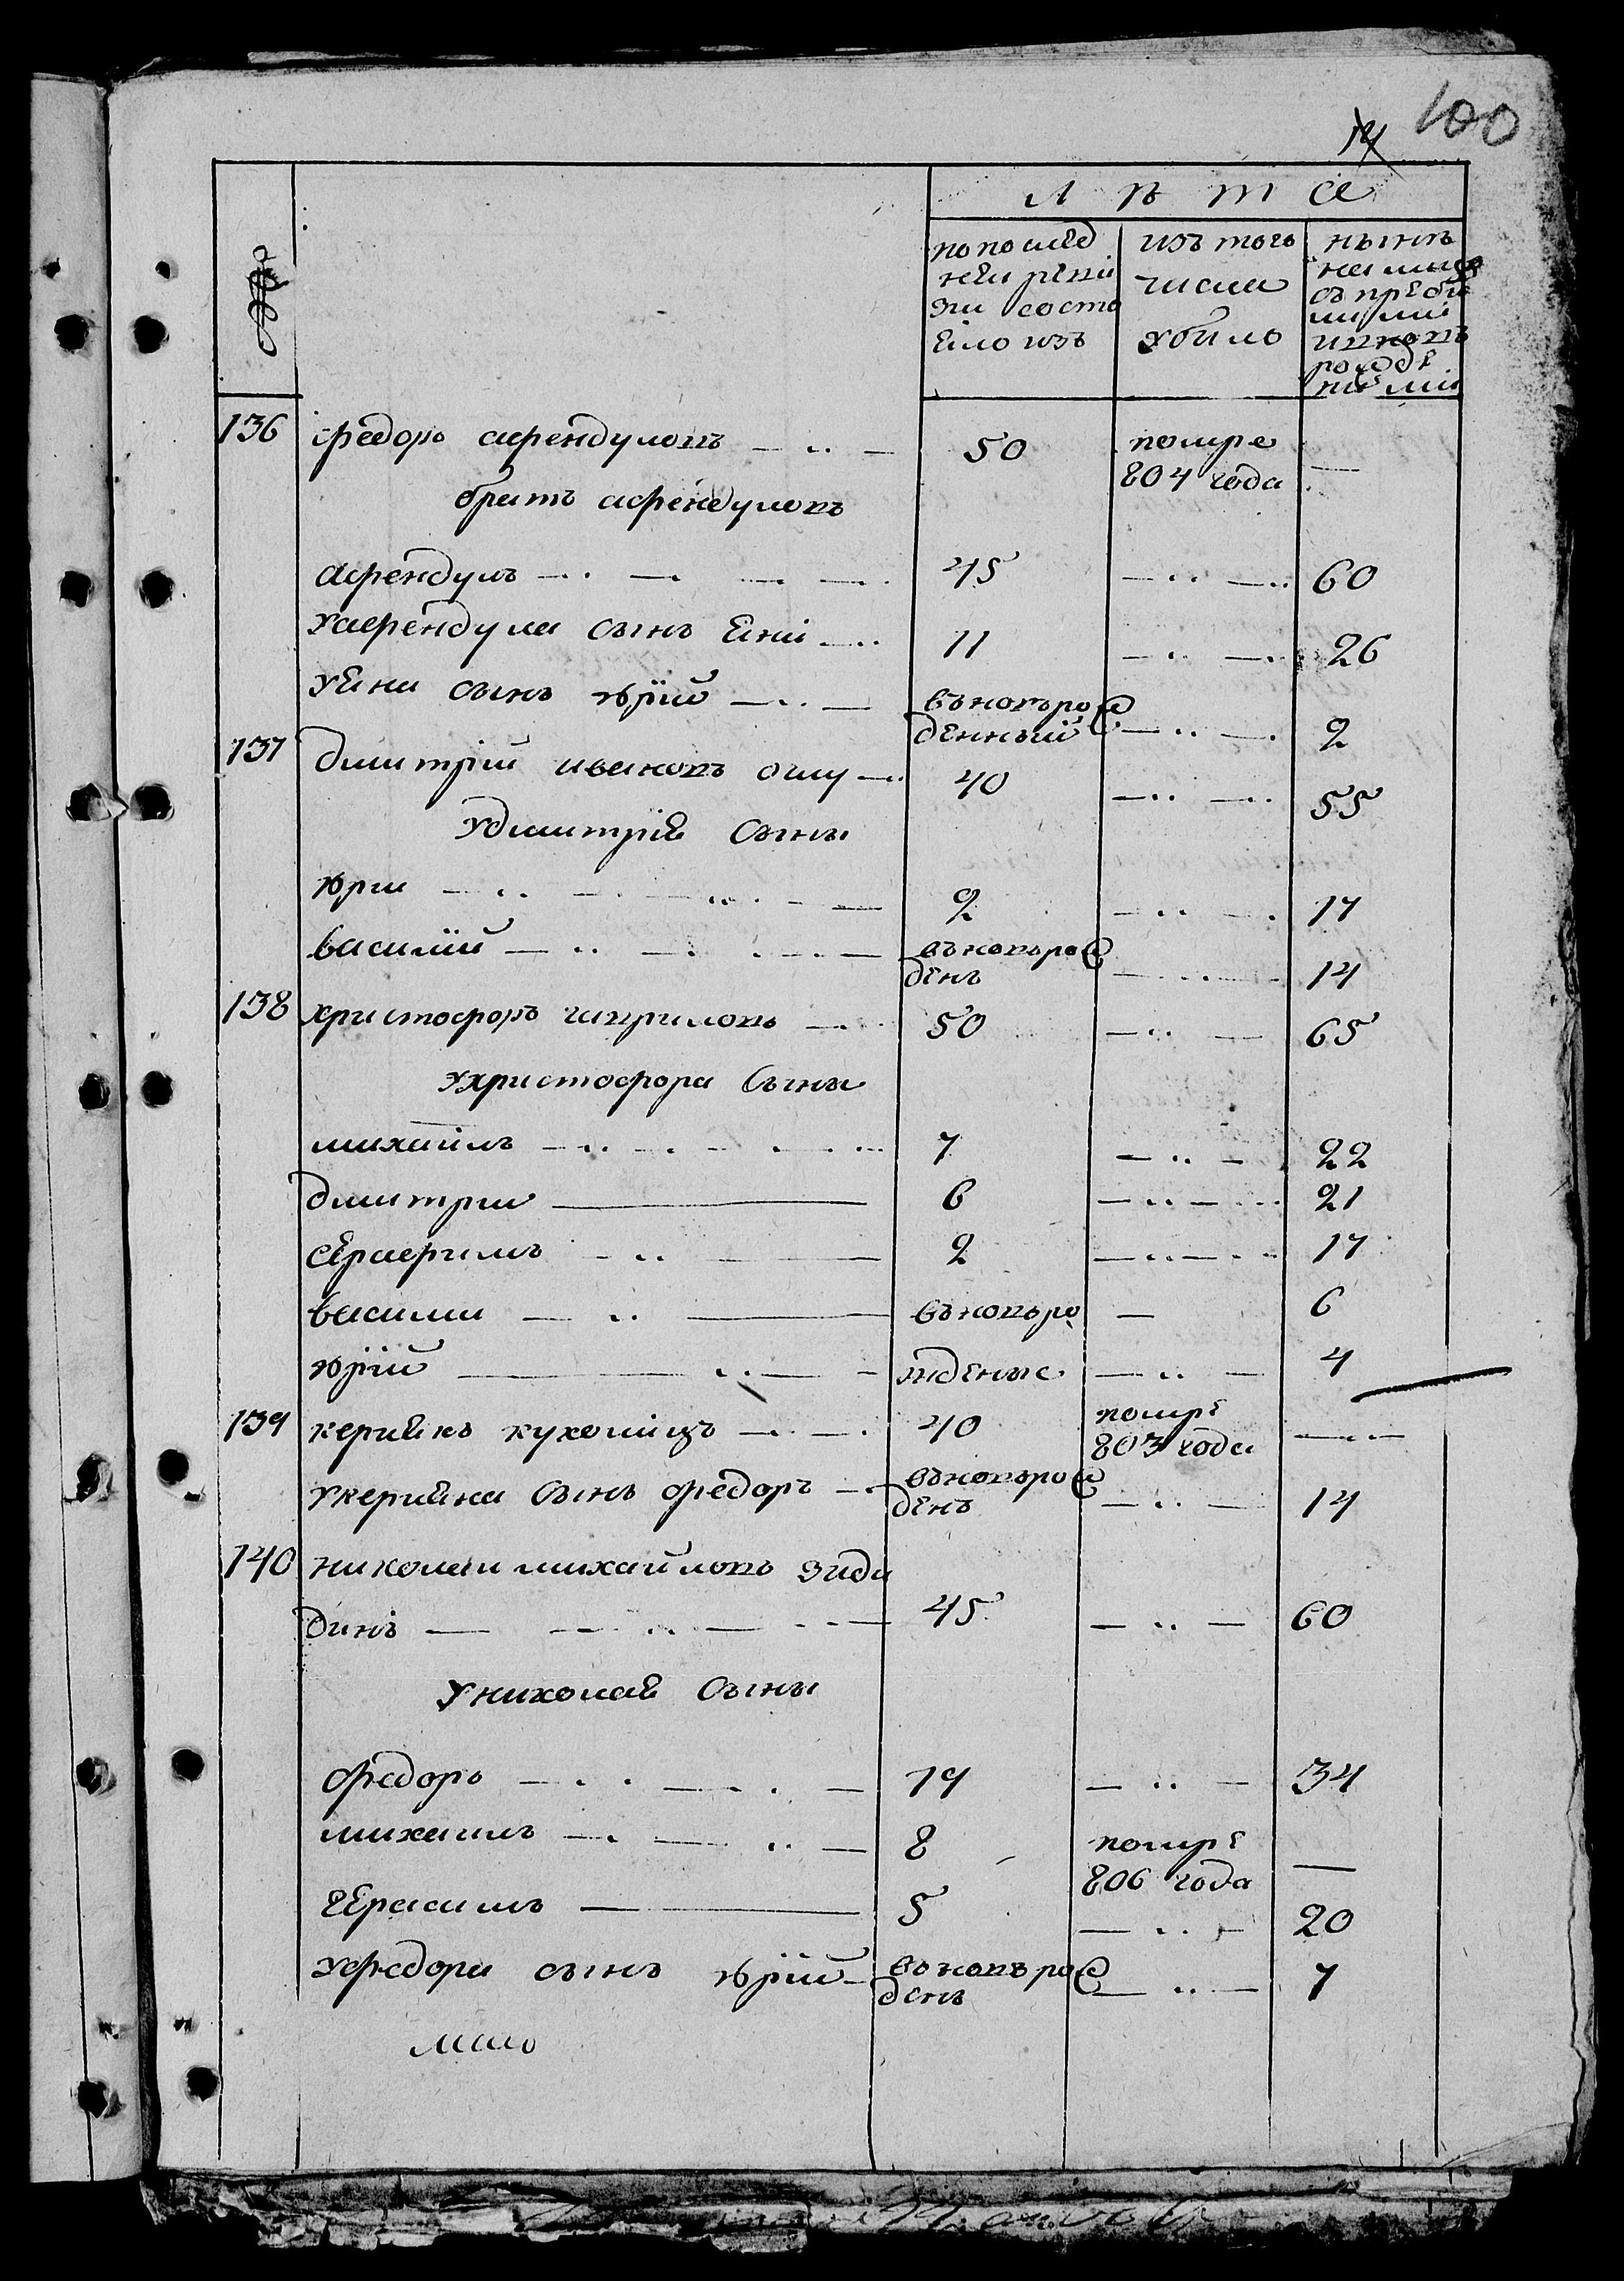 100
Лѣта
по послед
ней реви
зіи состо
яло изъ
изъ того
числа
убыло
нынѣ
на лицо
съ прибы
лыми
и новъ
рожде
ными
136 федоръ афендуловъ 50 помре —
804 года
братъ афендуловъ
афендулъ 45 60
у афендула сынъ яни 11 26
у яни сынъ юрій въновърож
денный 2
137 дмитрій ивановъ оглу 40 55
у дмитрія сыны
юрии 2 17
василій въновърож
денъ 14
138 христофоръ гавриловъ 50 65
у христофора сыны
михаилъ 7 22
дмитрии 6 21
серафимъ 2 17
василии въновъро 6
юрій жденые 4
139 помре
803 года
40
сынъ федоръ въновърож
денъ 14
140 николаи михайловъ
45 60
у николая сыны
федоръ 19 34
михаилъ 8 помре —
806 года
герасимъ 5 20
у федора сынъ юрій въновърож
денъ 7